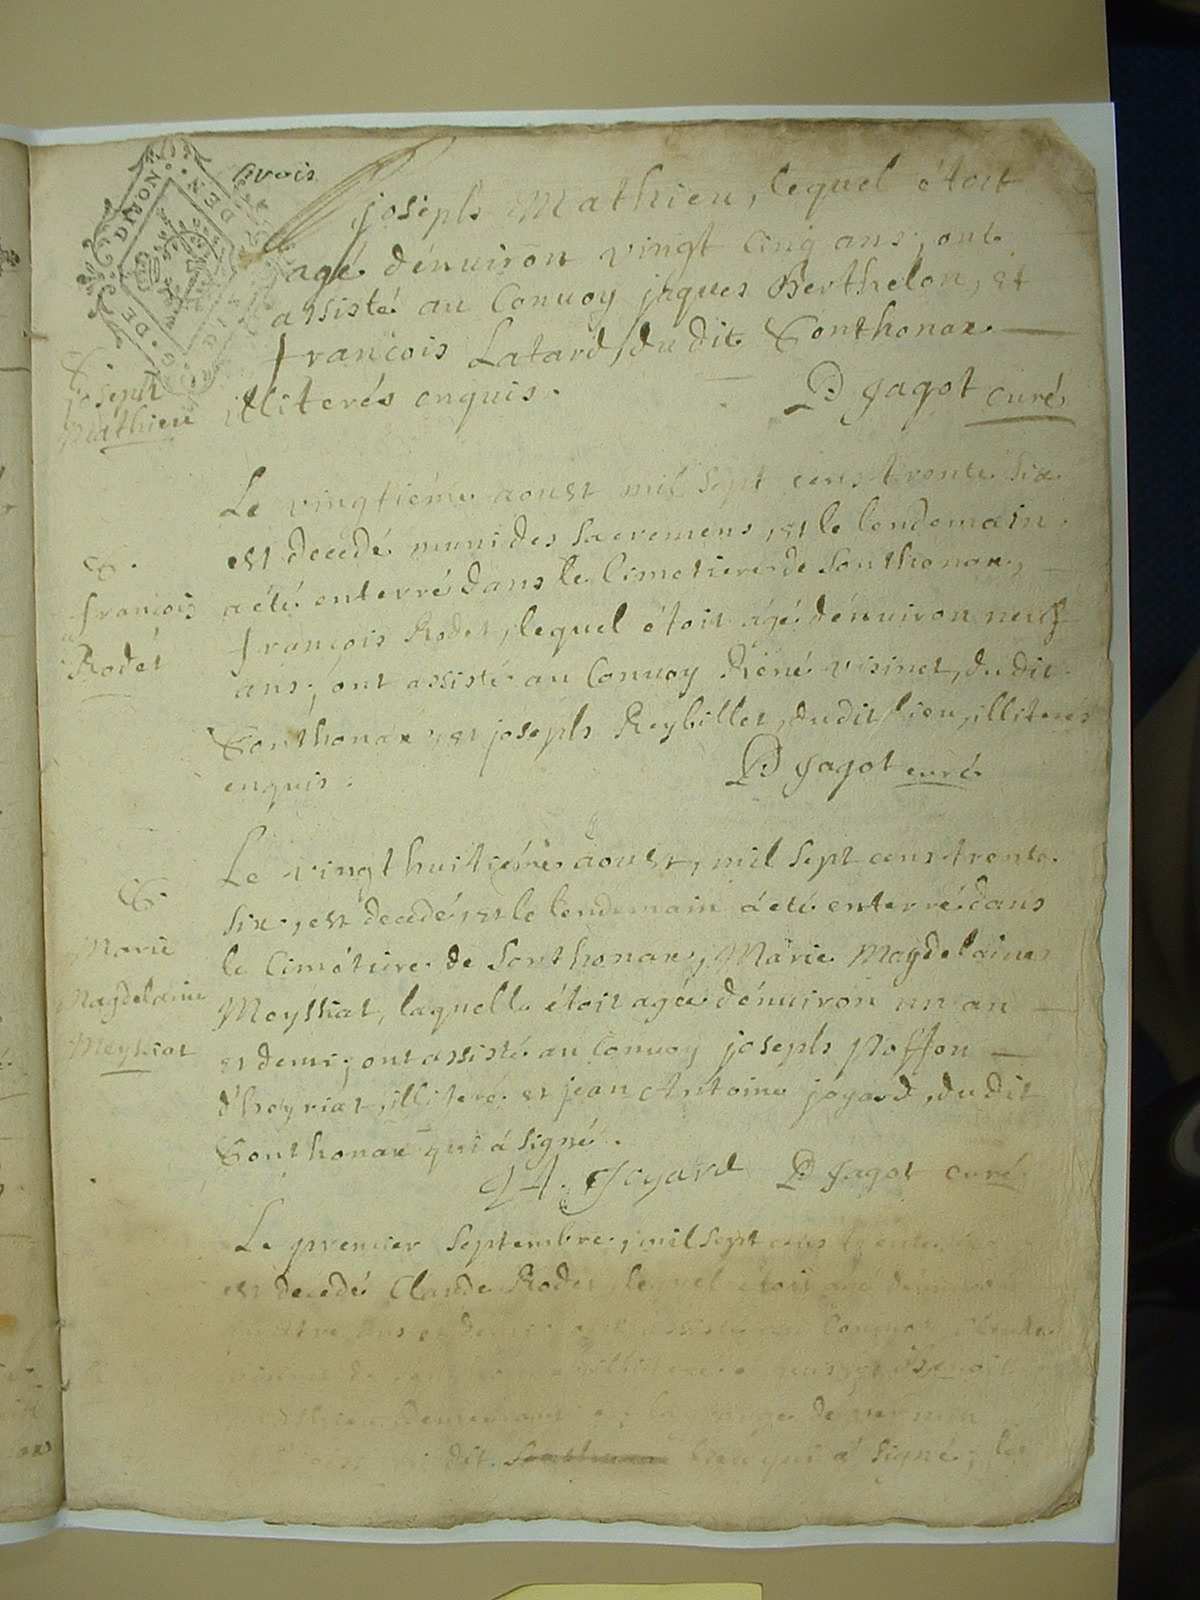 trois
DIJON
G. DE
DEN.
joseph Mathieu, lequel étoit
agé dénuiron vingt cinq ans; ont
assisté au Conuoy jaques Berthelon, et
françois Latard, du dit Sonthonax
illiterés enquis.
P Jagot curé
S.
joseph
Mathieu
Le vingtiéme aoust mil sept cens trente six
est decedé muni des sacremens, et le lendemain
a été enterré dans le Cimetiere de Sonthonax,
françois Rodet, lequel étoit ágé dénuiron neuf
ans; ont assisté au Conuoy René visinet, du dit
Sonthonax, et joseph Reybillet, du dit lieu, illiterés
enquis.
P Jagot curé
S.
françois
Rodet
Le vingt huitiéme aoust, mil sept cens trente
six, est decedé, et le lendemain á eté enterré dans
le Cimétiere de Sonthonax, Marie Magdelaine
Meyssiat, laquelle étoit agée dénuiron un an
et demi; ont assisté au Conuoy joseph Poffon
d'heyriat, illiteré et jean Antoine joyard, du dit
Sonthonax qui á signé.
S.
Marie
Magdelaine
Meyssiat
J A. Joyard P Jagot curé
Le premier Septembre, mil sept cens trente
est decedé Claude Rodet, lequel étoit agé dénuiron
quatre ans et demi; ont assisté au Conuoy Claude
demeurant en la grange de
dit lieu qui á signé, le